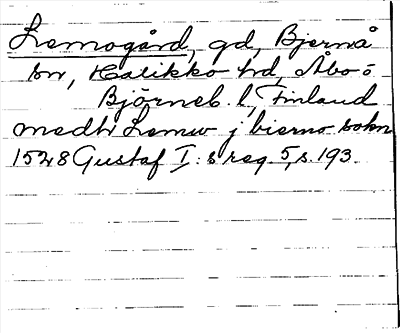 Lemogård, gd, Bjernå
sn, Halikko hd, Åbo o.
Björneb. l, Finland
medh Lemw j bierno sokn
1528 Gustaf I:s reg. 5, s. 193.